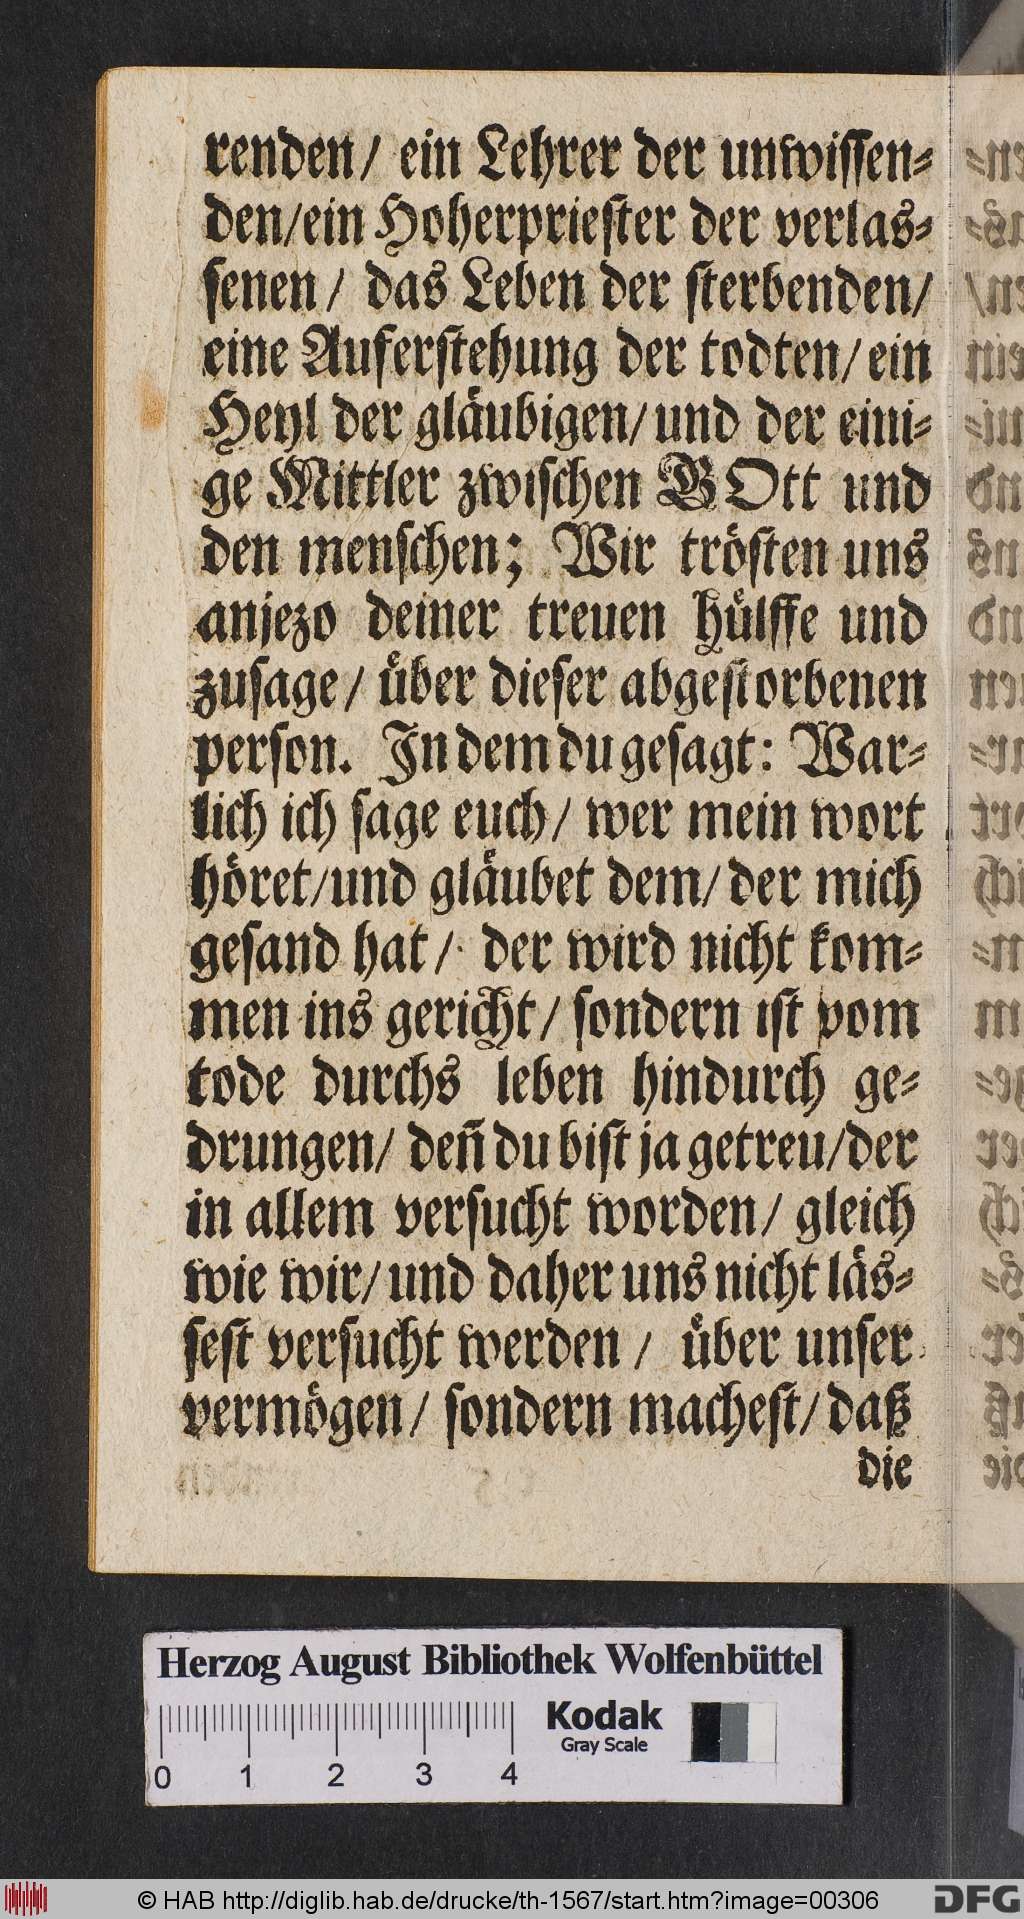 renden/ ein Lehrer der unwissen-
den/ein Hoherpriester der verlas-
senen/ das Leben der sterbenden/
eine Auferstehung der todten/ ein
Heyl der gläubigen/ und der eini-
ge Mittler zwischen GOtt und
den menschen; Wir trösten uns
anjezo deiner treuen hülffe und
zusage/ über dieser abgestorbenen
person. In dem du gesagt: War-
lich ich sage euch/ wer mein wort
höret/und gläubet dem/ der mich
gesand hat/ der wird nicht kom-
men ins gericht/ sondern ist vom
tode durchs leben hindurch ge-
drungen/ deñ du bist ja getreu/der
in allem versucht worden/ gleich
wie wir/ und daher uns nicht läs-
sest versucht werden/ über unser
vermögen/ sondern machest/ daß
die
Herzog August Bibliothek Wolfenbüttel
Kodak
Gray Scale
0 1 2 3 4
© HAB http://diglib.hab.de/drucke/th-1567/start.htm?image=00306
DFG